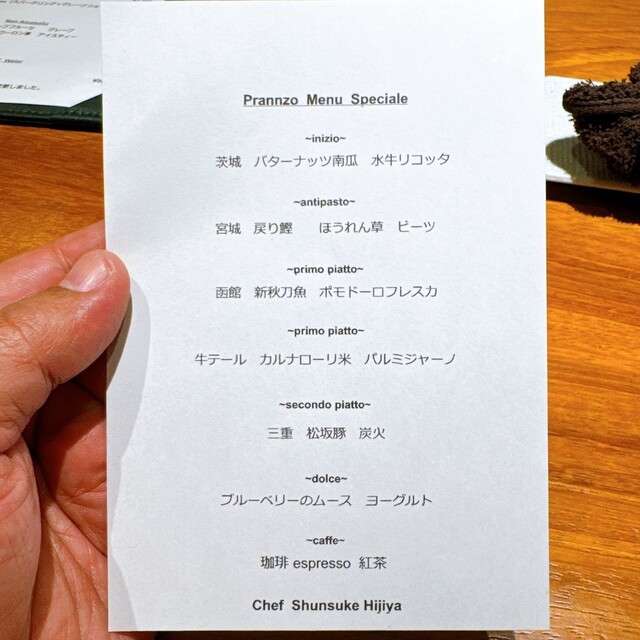 Non Alcoholic
グレープ
アイスティー
Prannzo Menu Speciale
~inizio~
茨城 バターナッツ南瓜 水牛リコッタ
~antipasto~
宮城 戻り鰹 ほうれん草 ビーツ
~primo piatto~
函館 新秋刀魚 ポモドーロフレスカ
~primo piatto~
牛テール カルナローリ米 パルミジャーノ
~secondo piatto~
三重 松坂豚 炭火
~dolce~
ブルーベリーのムース ヨーグルト
~caffe~
珈琲 espresso 紅茶
Chef Shunsuke Hijiya